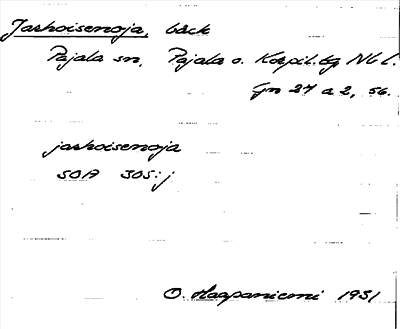 Jarhoisenoja, bäck
Pajala sn, Pajala o. Korpil. tg Nb l.
Gn 27 a 2, 56.
jarhoisenoja
SOA 305:j
O. Haapaniemi 1931